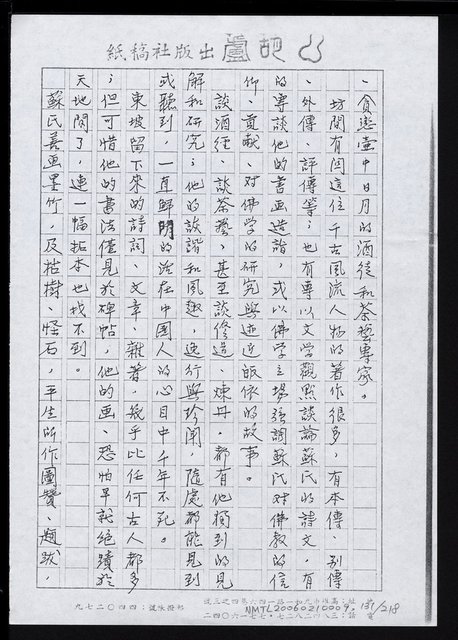 紙稿社版出蘆葫
、貪戀壺中日月的酒徒和茶藝專家。
坊間有関這位千古風流人物的著作很多，有本傳、別傳
、外傳、評傳等；也有專以文学觀點談論蘇氏的詩文，有
的專談他的書画造詣，或以佛学立場强調蘇氏对佛教的信
仰、貢献、对佛学的研究與逃近皈依的故事。
談酒經、談茶藝、甚至談修道、煉丹，都有他獨到的見
解和研究；他的詼諧和風趣，逸行與珍聞，隨處都能見到
或聽到，一直鮮明的活在中國人的心目中千年不死。
東坡留下來的詩詞、文章、雜著，幾乎比任何古人都多
；但可惜他的書法僅見於碑帖，他的画、恐怕早就絕蹟於
天地間了，連一幅拓本也找不到。
蘇氏善画墨竹，及枯樹、怪石，平生所作圖贊、題跋，
NMTL20060210009.
131/218
九七二〇四四〇：號撥郵